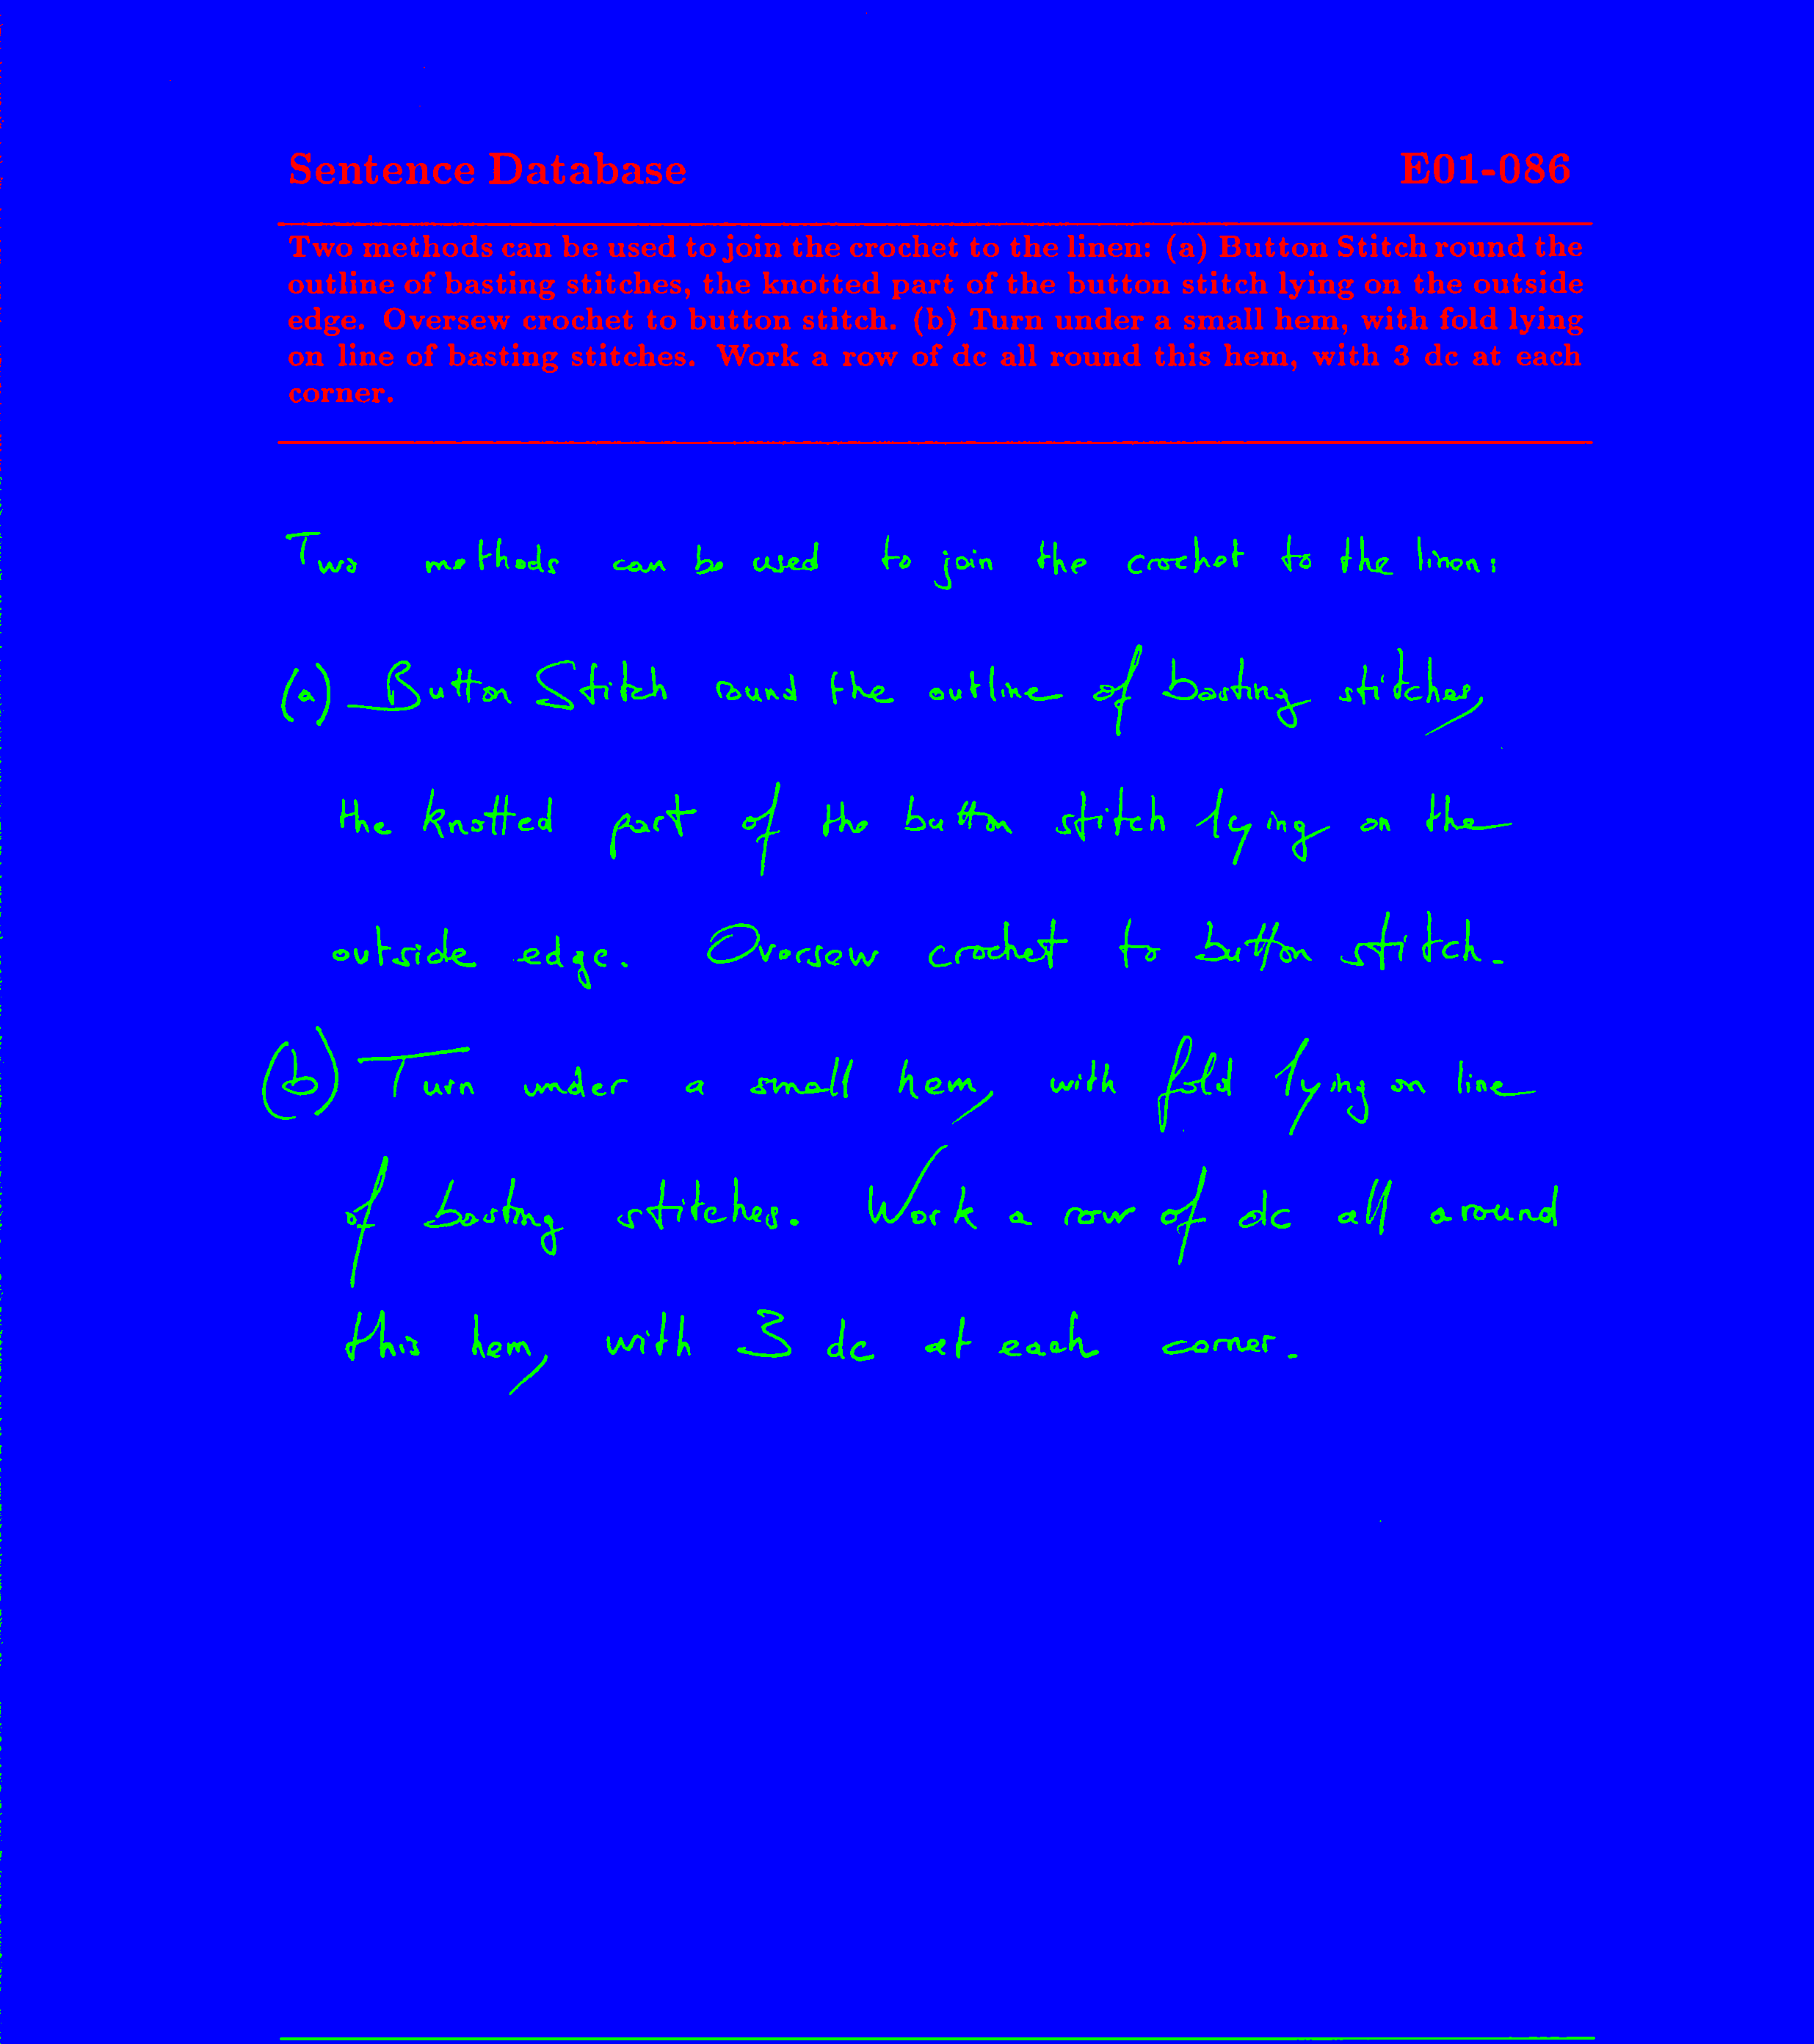 Sentence Database E01-086
Two methods can be used to join the crochet to the linen: (a) Button Stitch round the
outline of basting stitches, the knotted part of the button stitch lying on the outside
edge. Oversew crochet to button stitch. (b) Turn under a small hem, with fold lying
on line of basting stitches. Work a row of dc all round this hem, with 3 dc at each
corner.
Two methods can be used to join the crochet to the linen:
(a) Button Stitch round the outline of basting stitches,
the knotted part of the button stitch lying on the
outside edge. Oversew crochet to button stitch.
(b) Turn under a small hem, with fold lying on line
of basting stitches. Work a row of dc all around
this hem, with 3 dc at each corner.